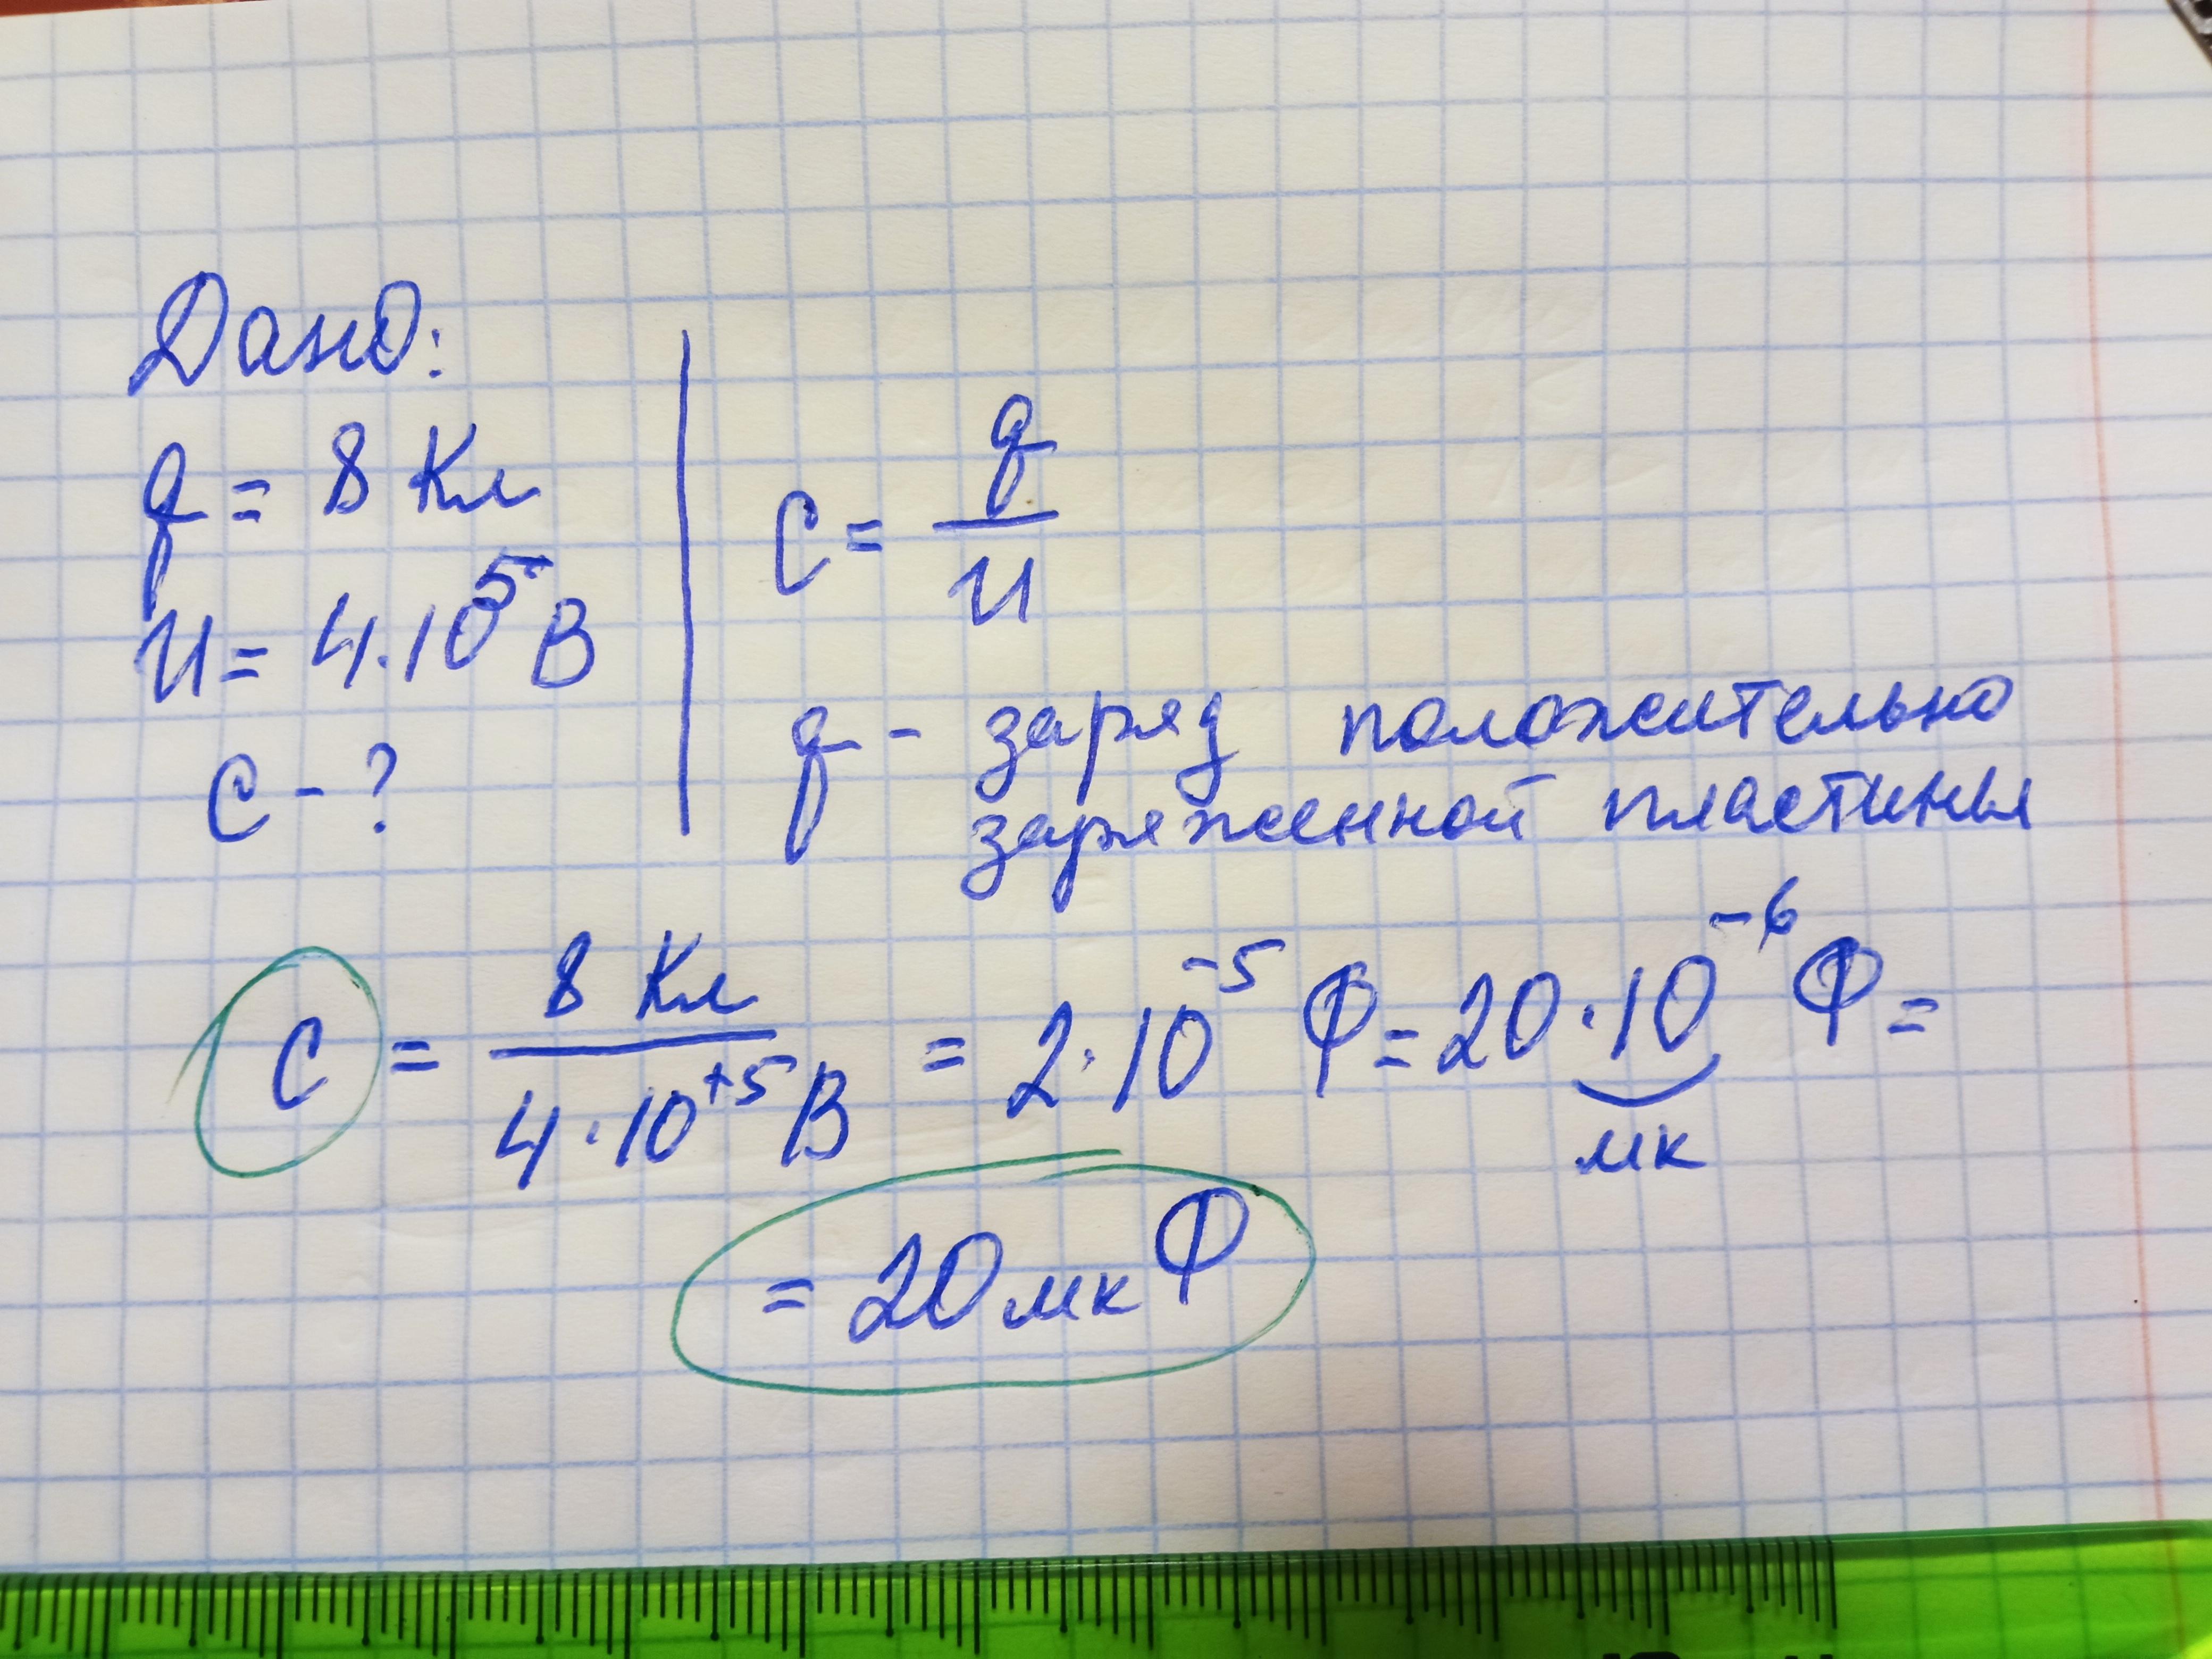 Дано:
q = 8 Кл
U = 4·10⁵ В
C - ?
C = q/U
q - заряд положительно
заряженной пластины
C = 8 Кл / 4·10⁺⁵ В = 2·10⁻⁵ Ф = 20·10⁻⁶ Ф =
мк
= 20 мкФ